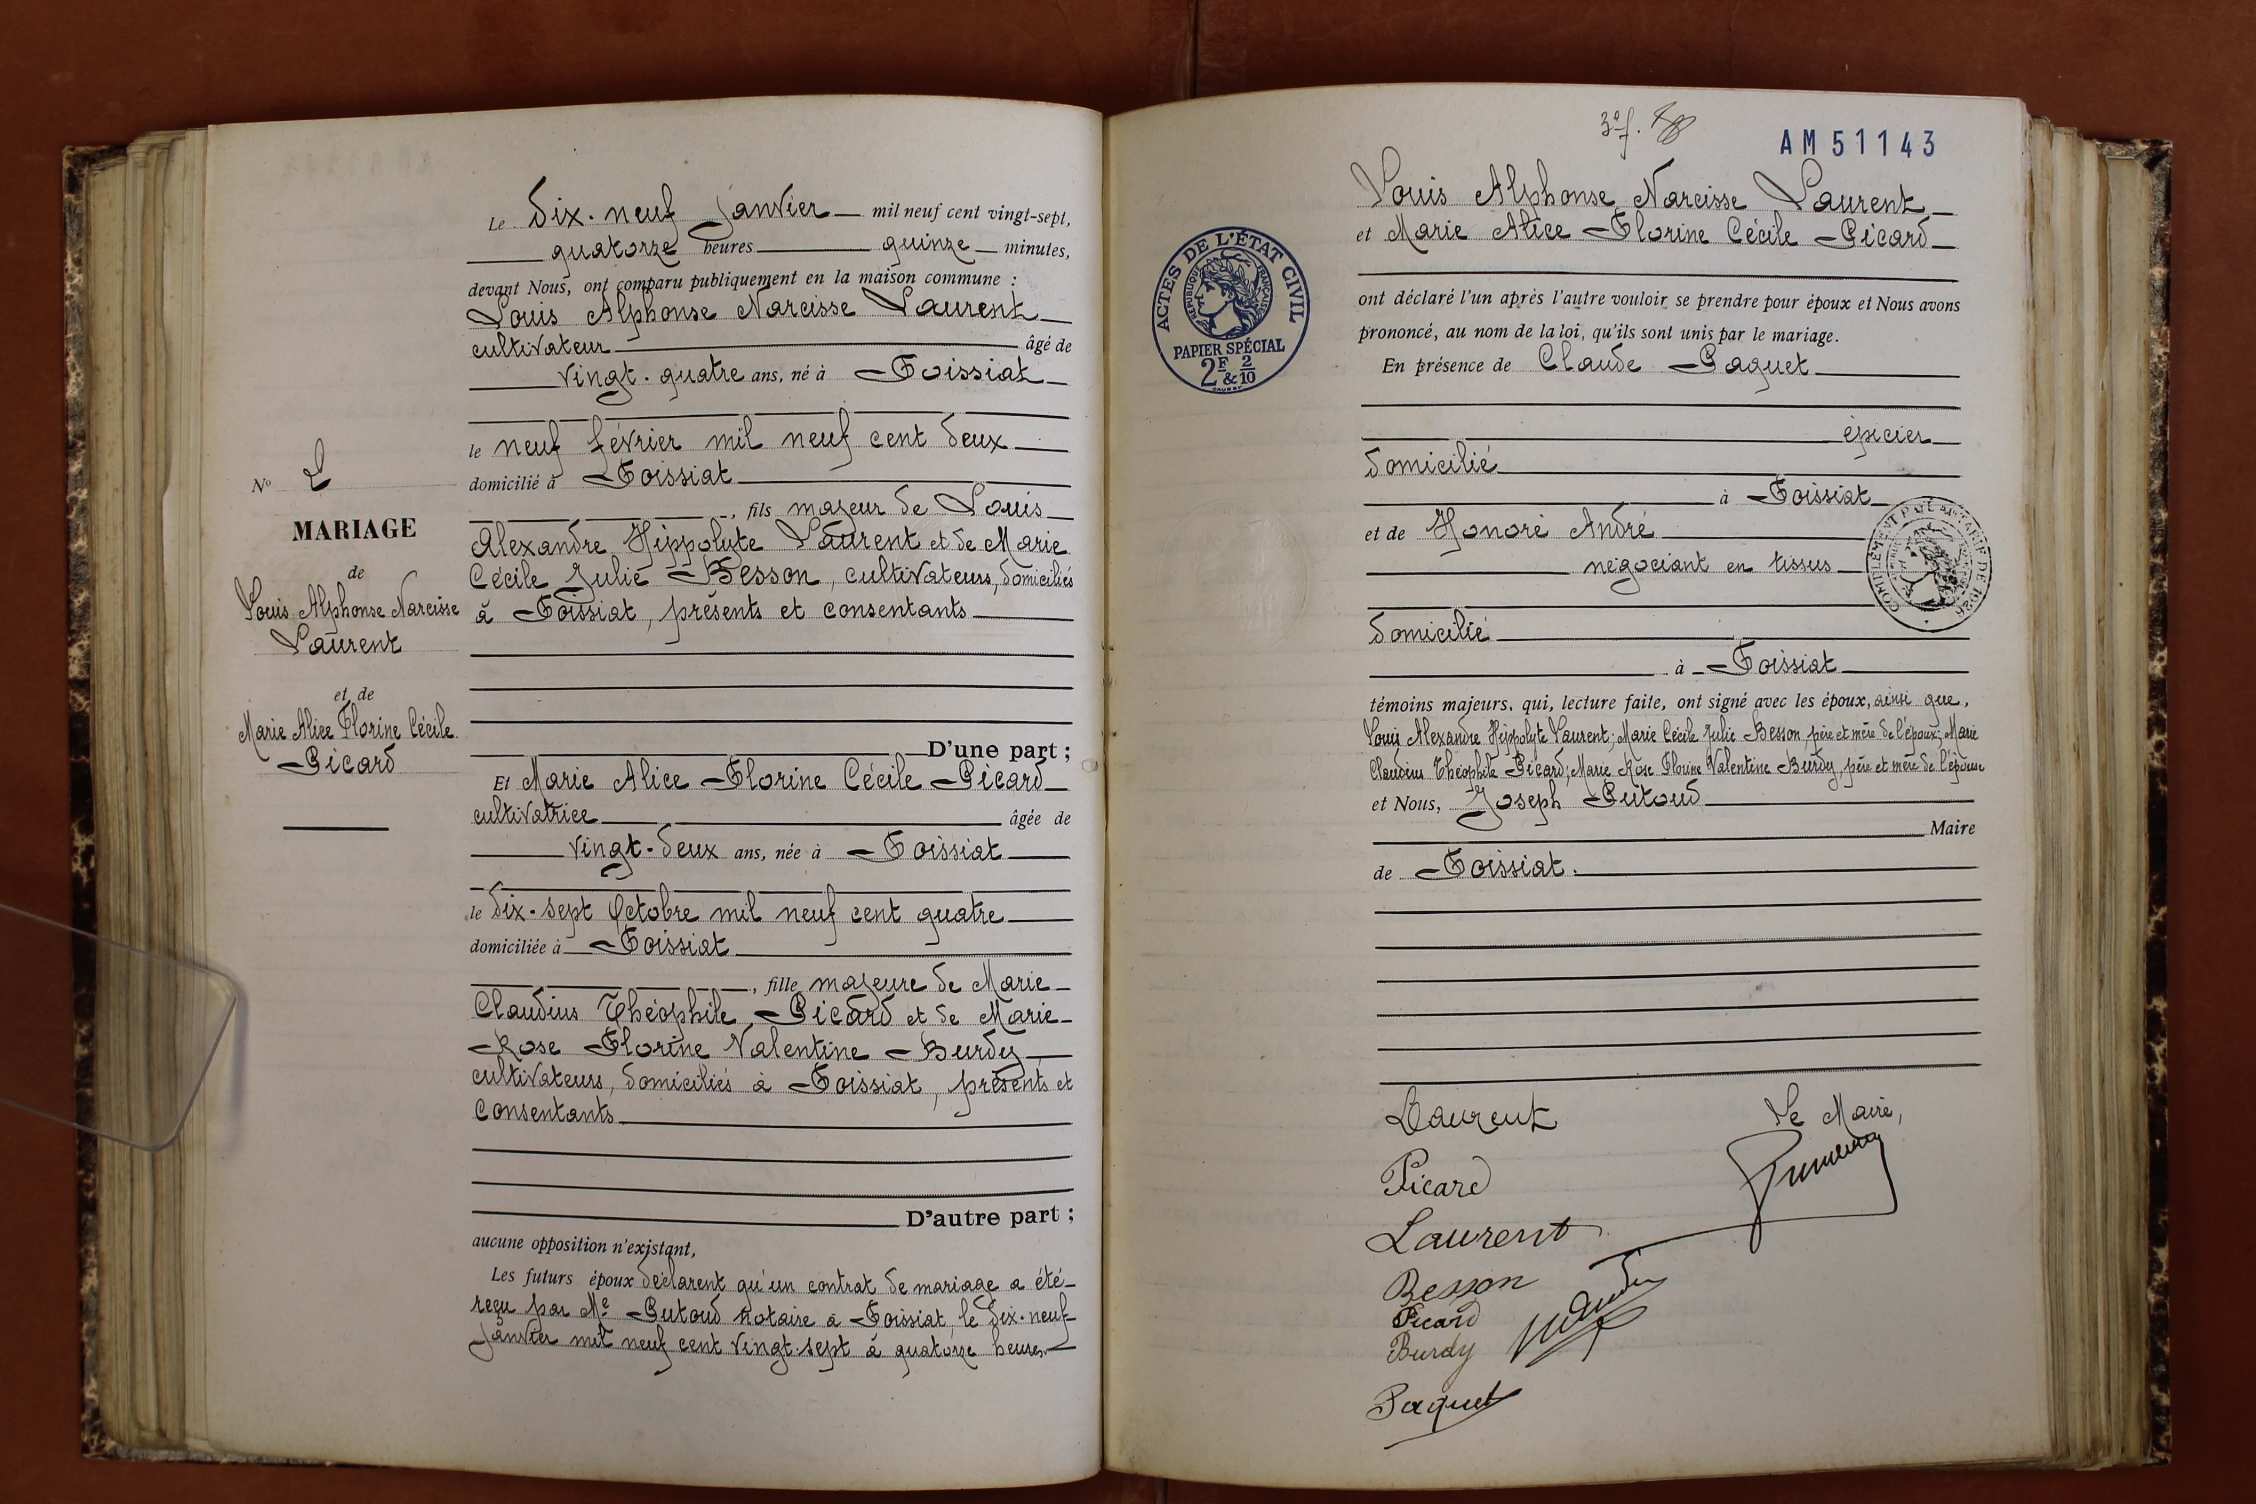 Le dix-neuf janvier mil neuf cent vingt-sept,
quatorze heures quinze minutes,
devant Nous, ont comparu publiquement en la maison commune :
Louis Alphonse Narcisse Laurent
cultivateur âgé de
vingt-quatre ans, né à Foissiat
le neuf février mil neuf cent deux
domicilié à Foissiat
, fils majeur de Louis
Alexandre Hippolyte Laurent et de Marie
Cécile Julie Besson, cultivateurs, domiciliés
à Foissiat, présents et consentants
D'une part ;
Et Marie Alice Florine Cécile Picard
cultivatrice âgée de
vingt-deux ans, née à Foissiat
le dix-sept Octobre mil neuf cent quatre
domiciliée à Foissiat
, fille majeure de Marie
Claudius Théophile Picard et de Marie
Rose Florine Valentine Burdy,
cultivateurs, domiciliés à Foissiat, présents et
consentants
D'autre part ;
aucune opposition n'existant,
Les futurs époux déclarent qu'un contrat de mariage a été
reçu par Me Putoud notaire à Foissiat, le dix-neuf
janvier mil neuf cent vingt-sept à quatorze heures
No 2
MARIAGE
de
Louis Alphonse Narcisse
Laurent
et de
Marie Alice Florine Cécile
Picard
3e f.
AM 51143
Louis Alphonse Narcisse Laurent
et Marie Alice Florine Cécile Picard
ont déclaré l'un après l'autre vouloir se prendre pour époux et Nous avons
prononcé, au nom de la loi, qu'ils sont unis par le mariage.
En présence de Claude Paquet
épicier
domicilié
à Foissiat
et de Honoré André
négociant en tissus
domicilié
à Foissiat
témoins majeurs, qui, lecture faite, ont signé avec les époux, ainsi que,
Louis Alexandre Hippolyte Laurent; Marie Cécile Julie Besson, père et mère de l'époux; Marie
Claudius Théophile Picard; Marie Rose Florine Valentine Burdy, père et mère de l'épouse
et Nous, Joseph Putoud
Maire
de Foissiat.
ACTES DE L'ÉTAT CIVIL
RÉPUBLIQUE FRANÇAISE
PAPIER SPÉCIAL
2F & 2/10
COMPLÉMENT PAR TARIF DE 1926
Laurent
Le Maire,
Picard
Laurent
Besson
Picard
Burdy
Paquet